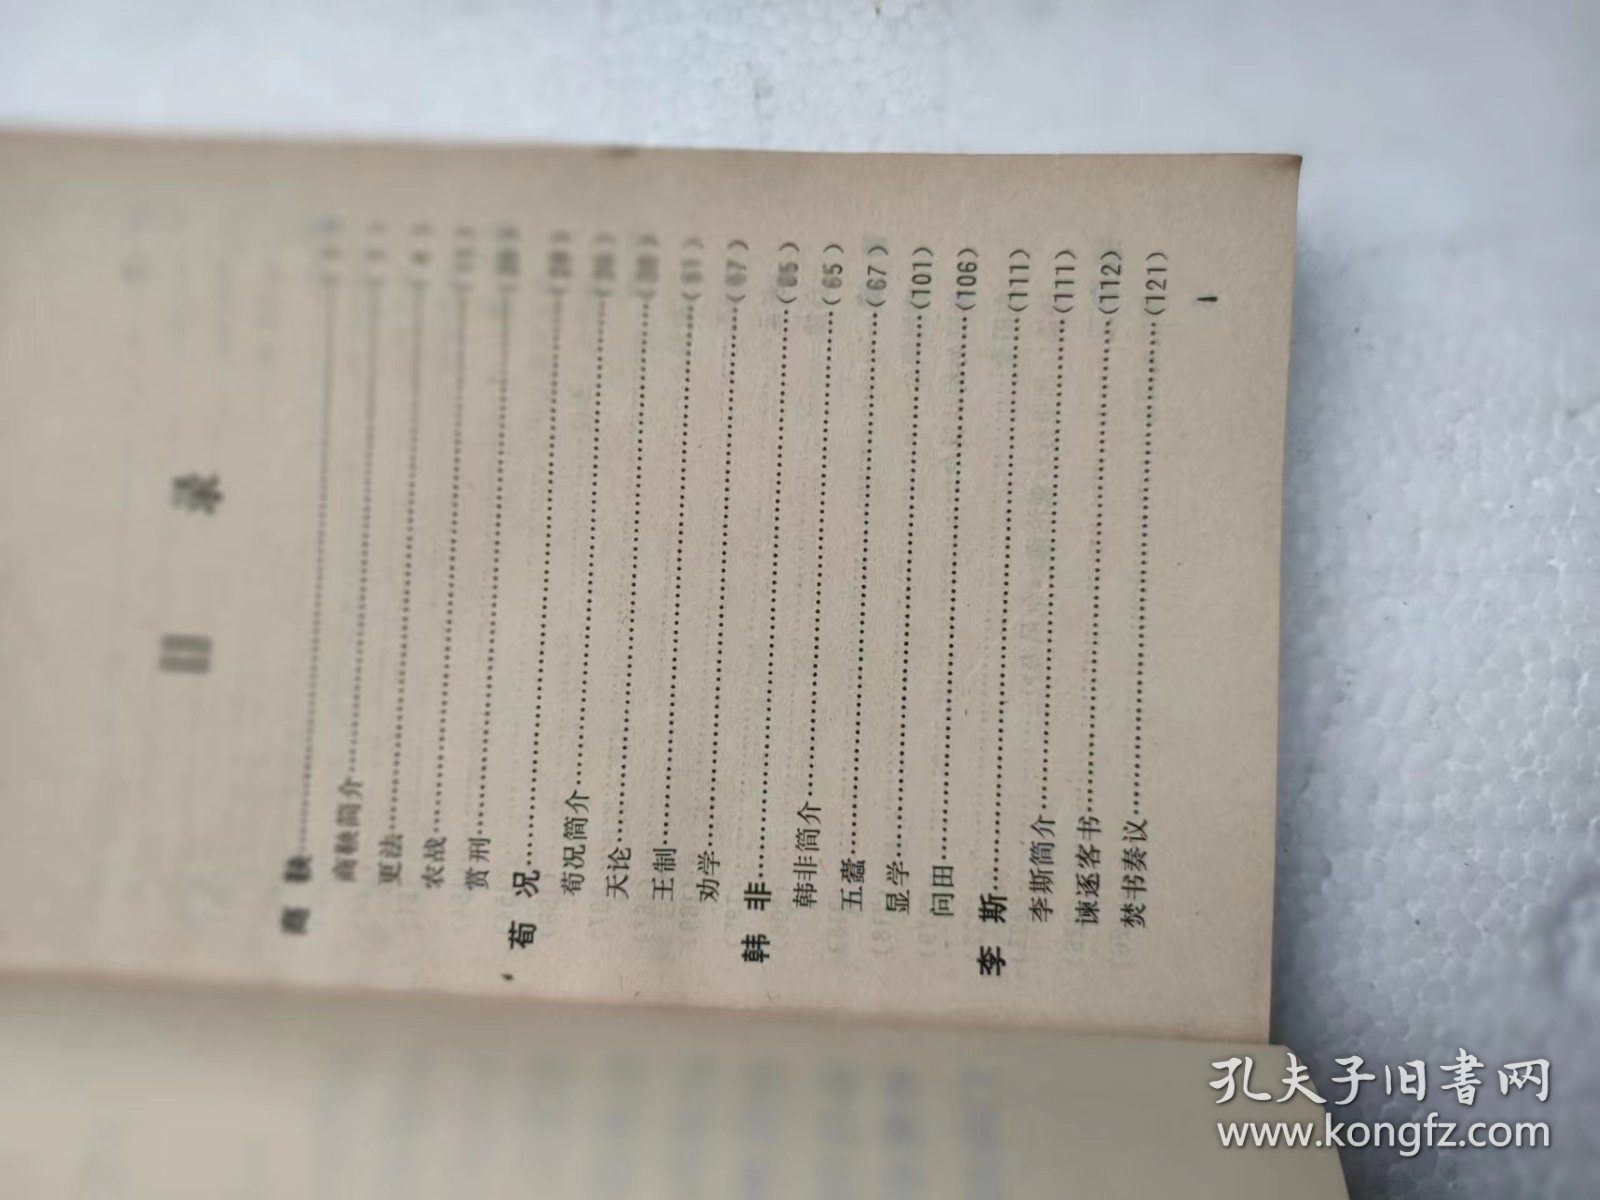 目 录
商 鞅………(1)
商鞅简介………(1)
更法………(4)
农战………(11)
赏刑………
荀 况………
荀况简介………
天论………
王制………
劝学………
韩 非………(65)
韩非简介………(65)
五蠹………(67)
显学………(101)
问田………(106)
李 斯………(111)
李斯简介………(111)
谏逐客书………(112)
焚书奏议………(121)
1
孔夫子旧书网
www.kongfz.com